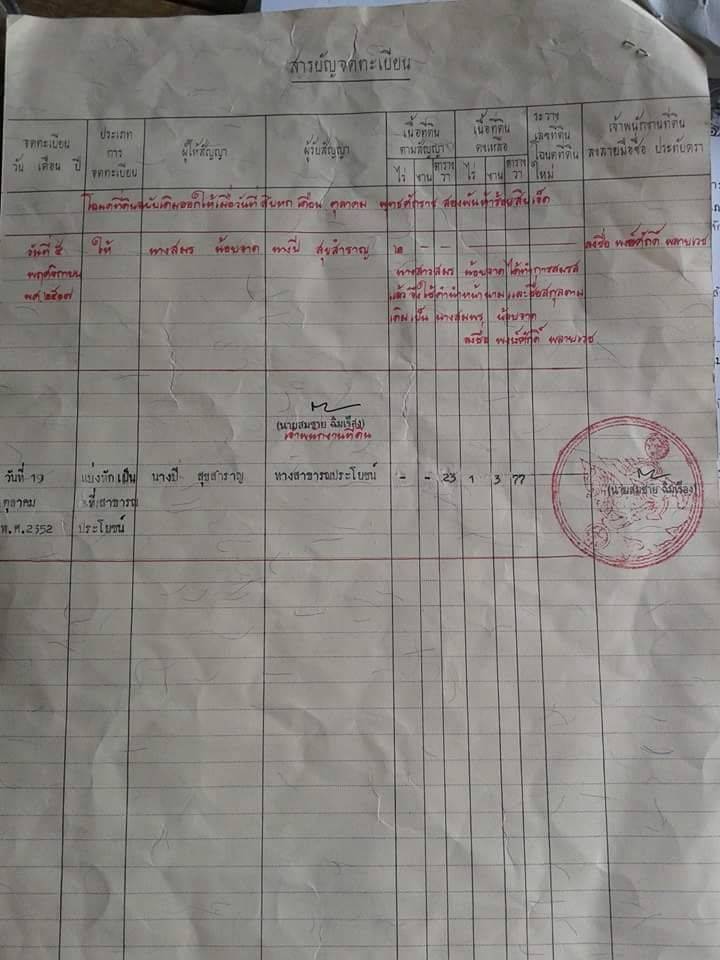 สารบัญจดทะเบียน
จดทะเบียน
วัน เดือน ปี
ประเภท
การ
จดทะเบียน
ผู้ให้สัญญา
ผู้รับสัญญา
เนื้อที่ดิน
ตามสัญญา
ไร่ งาน ตารางวา
เนื้อที่ดิน
คงเหลือ
ไร่ งาน ตารางวา
ระวาง
เลขที่ดิน
โฉนดที่ดิน
ใหม่
เจ้าพนักงานที่ดิน
ลงลายมือชื่อ ประทับตรา
โฉนดที่ดินฉบับเดิมออกให้เมื่อวันที่ สิบหก เดือน ตุลาคม พุทธศักราช สองพันห้าร้อยสิบเจ็ด
วันที่ ๕ ให้ นางสมร น้อยจาด นางปี สุขสำราญ ๒ - - ลงชื่อ พงษ์ศักดิ์ พลายเวช
พฤศจิกายน
พศ ๒๕๑๗
นางสาวสมร น้อยจาด ได้ทำการสมรส
แล้ว จึงใช้คำนำหน้านาม และชื่อสกุลตาม
เดิมเป็น นางสมร น้อยจาด
ลงชื่อ พงษ์ศักดิ์ พลายเวช
(นายสมชาย ฉิมเรือง)
เจ้าพนักงานที่ดิน
วันที่ 19 แบ่งหักเป็น นางปี สุขสำราญ ทางสาธารณประโยชน์ - - 23 1 3 77
ตุลาคม ที่สาธารณ
พ.ศ.2552 ประโยชน์
(นายสมชาย ฉิมเรือง)